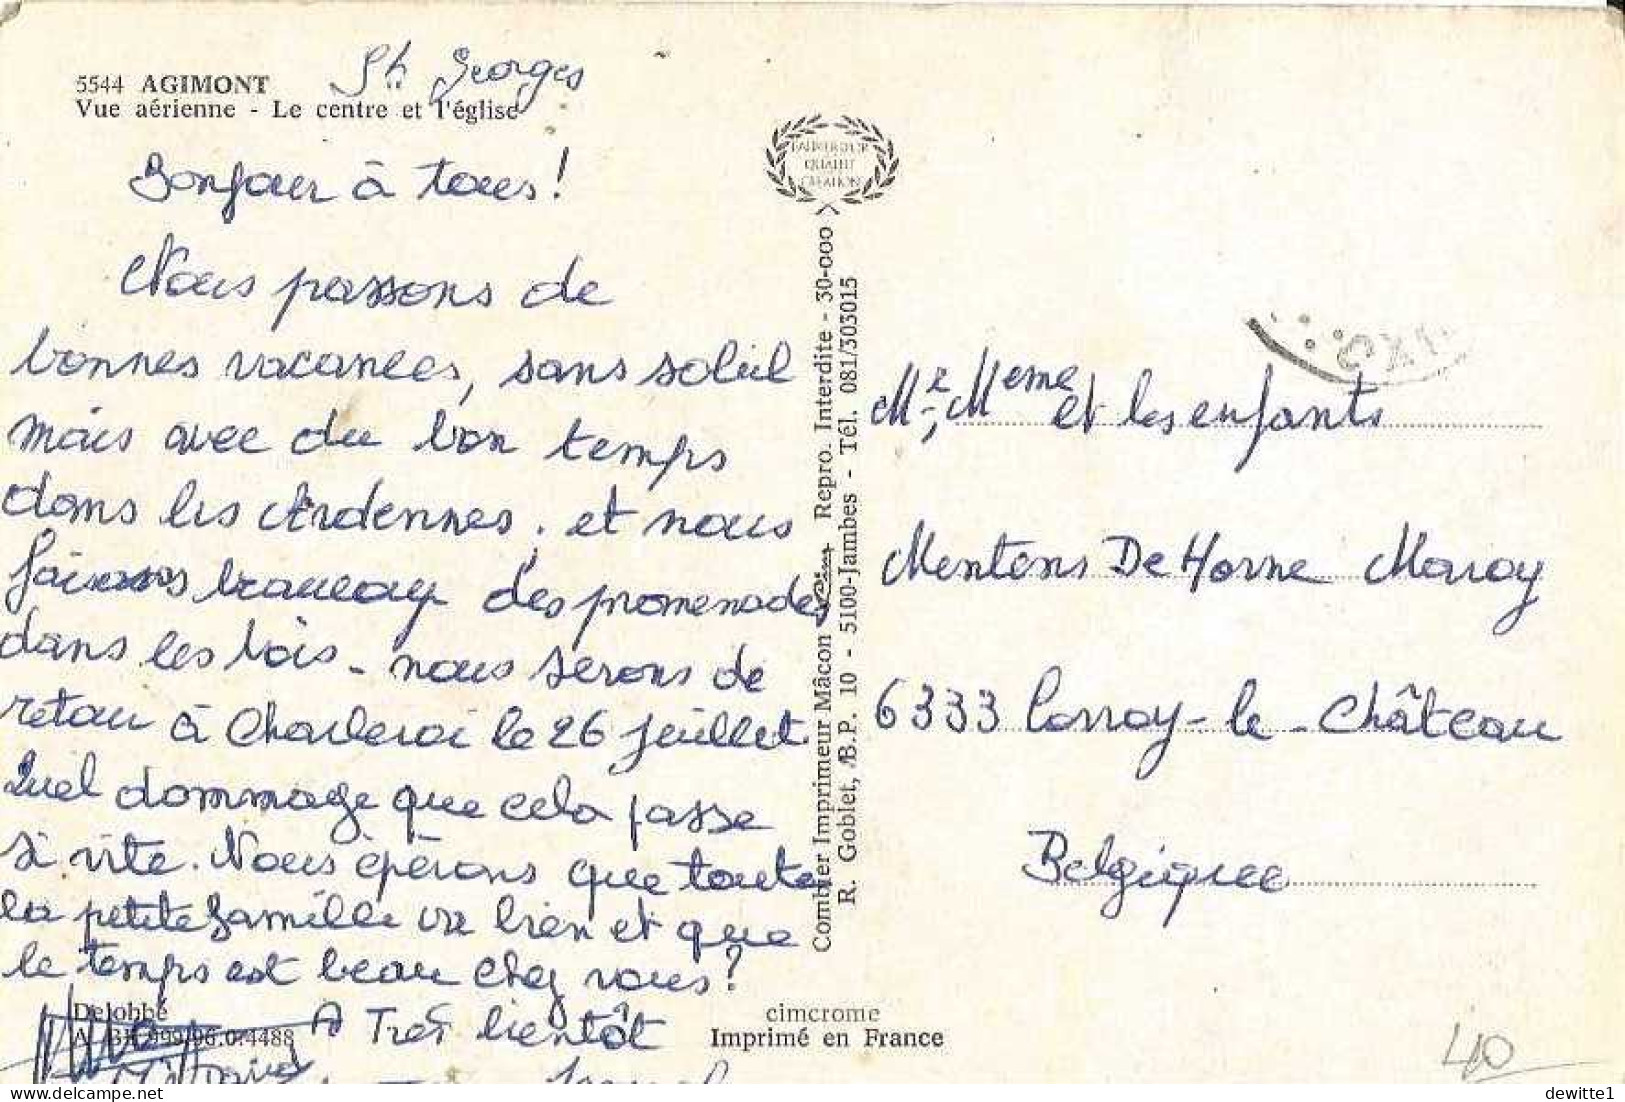 5544 AGIMONT
St Georges
Vue aérienne - Le centre et l'église
Bonjour à tous!
Nous passons de
bonnes vacances, sans soleil
mais avec du bon temps
dans les Ardennes, et nous
faisons beaucoup des promenades
dans les bois - nous serons de
retour à Charleroi le 26 juillet
Quel dommage que cela passe
si vite. Nous èpèrons que toute
la petite famille va bien et que
le temps est beau chez vous?
A Très bientôt
Delobbé
999/96.0.4488
David
Combier Imprimeur Mâcon Repro. Interdite - 30-000
R. Goblet, Æ.P. 10 - 5100-Jambes - Tél. 081/303015
cimcrome
Imprimé en France
Mr, Meme et les enfants
Mentens De Horne Maroy
6333 Corroy-le-Château
Belgique
40
dewitte1